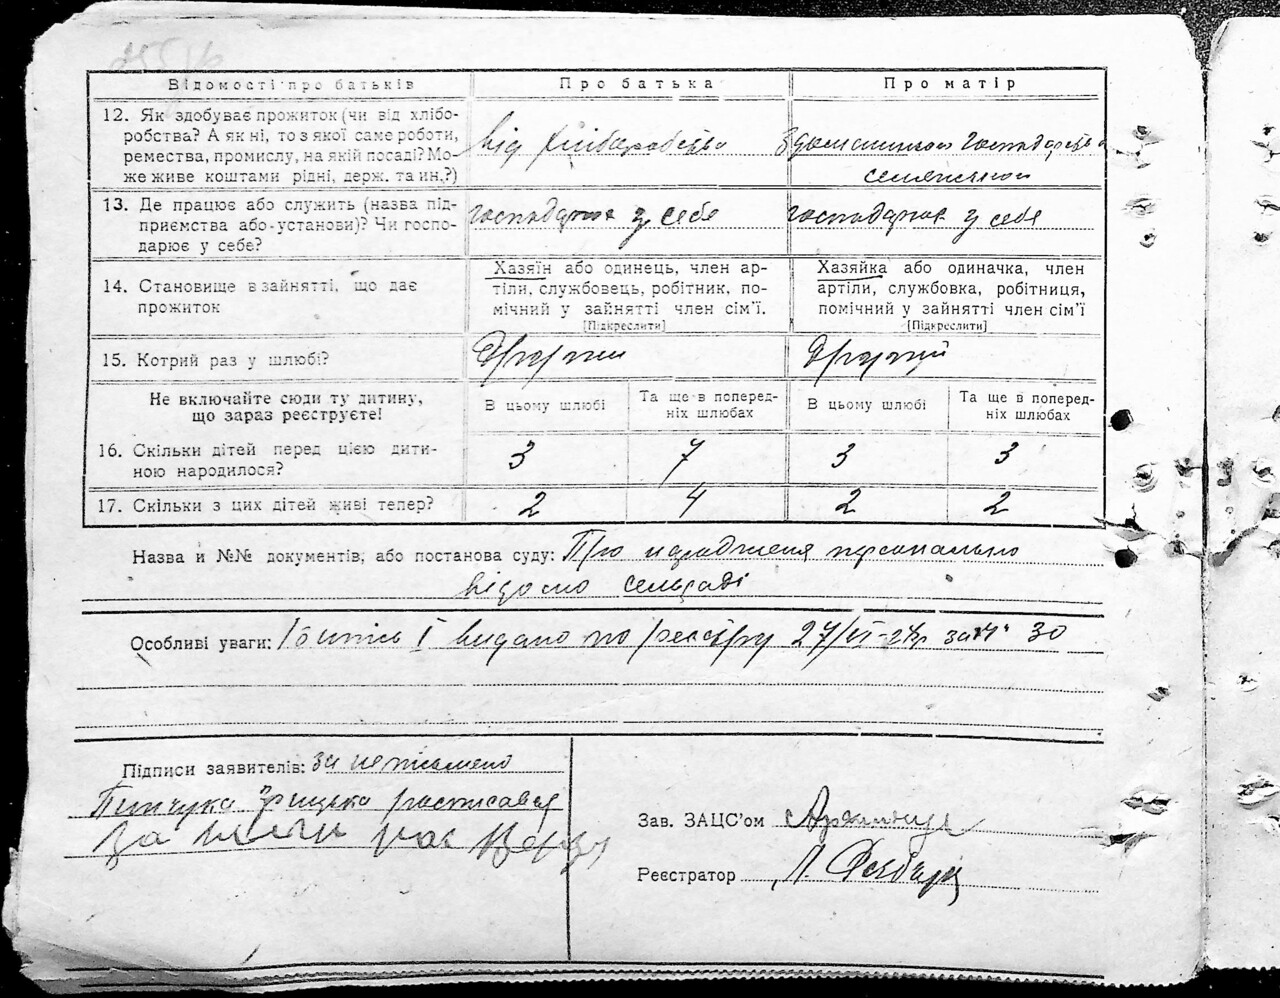 Відомості про батьків
Про батька
Про матір
12. Як здобуває прожиток (чи від хлібо-
робства? А як ні, то з якої саме роботи,
ремества, промислу, на якій посаді? Мо-
же живе коштами рідні, держ. та ин.?)
від хліборобства
з домашнього господарства
селянського
13. Де працює або служить (назва під-
приємства або установи)? Чи госпо-
дарює у себе?
господарює у себе
господарює у себе
14. Становище в зайнятті, що дає
прожиток
Хазяїн або одинець, член ар-
тіли, службовець, робітник, по-
мічний у зайнятті член сім'ї.
[Підкреслити]
Хазяйка або одиначка, член
артіли, службовка, робітниця,
помічний у зайнятті член сім'ї
[Підкреслити]
15. Котрий раз у шлюбі?
Другий
Другий
Не включайте сюди ту дитину,
що зараз реєструєте!
В цьому шлюбі
Та ще в поперед-
ніх шлюбах
В цьому шлюбі
Та ще в поперед-
ніх шлюбах
16. Скільки дітей перед цією дити-
ною народилося?
3
7
3
3
17. Скільки з цих дітей живі тепер?
2
4
2
2
Назва и №№ документів, або постанова суду: Про народження персонально
відомо сельраді
Особливі уваги: видано по реєстру 27/VI-24р за № 30
Підписи заявителів: за неписьмено
Грицька расписався
Зав. ЗАЦС'ом
Реєстратор